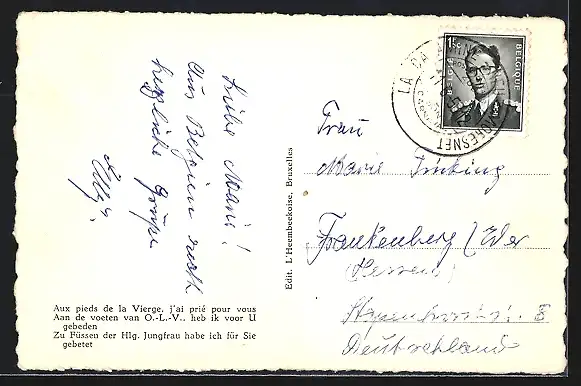 Liebe Mani!
Aus Belgien recht
herzliche Grüße
Elly.
Aux pieds de la Vierge, j'ai prié pour vous
Aan de voeten van O.-L.-V., heb ik voor U
gebeden
Zu Füssen der Hlg. Jungfrau habe ich für Sie
gebetet
Edit. L'Heembeekoise, Bruxelles
1F50
BELGIE
BELGIQUE
Frau
Marie
Frankenberg / Eder
(Hessen)
8
Deutschland